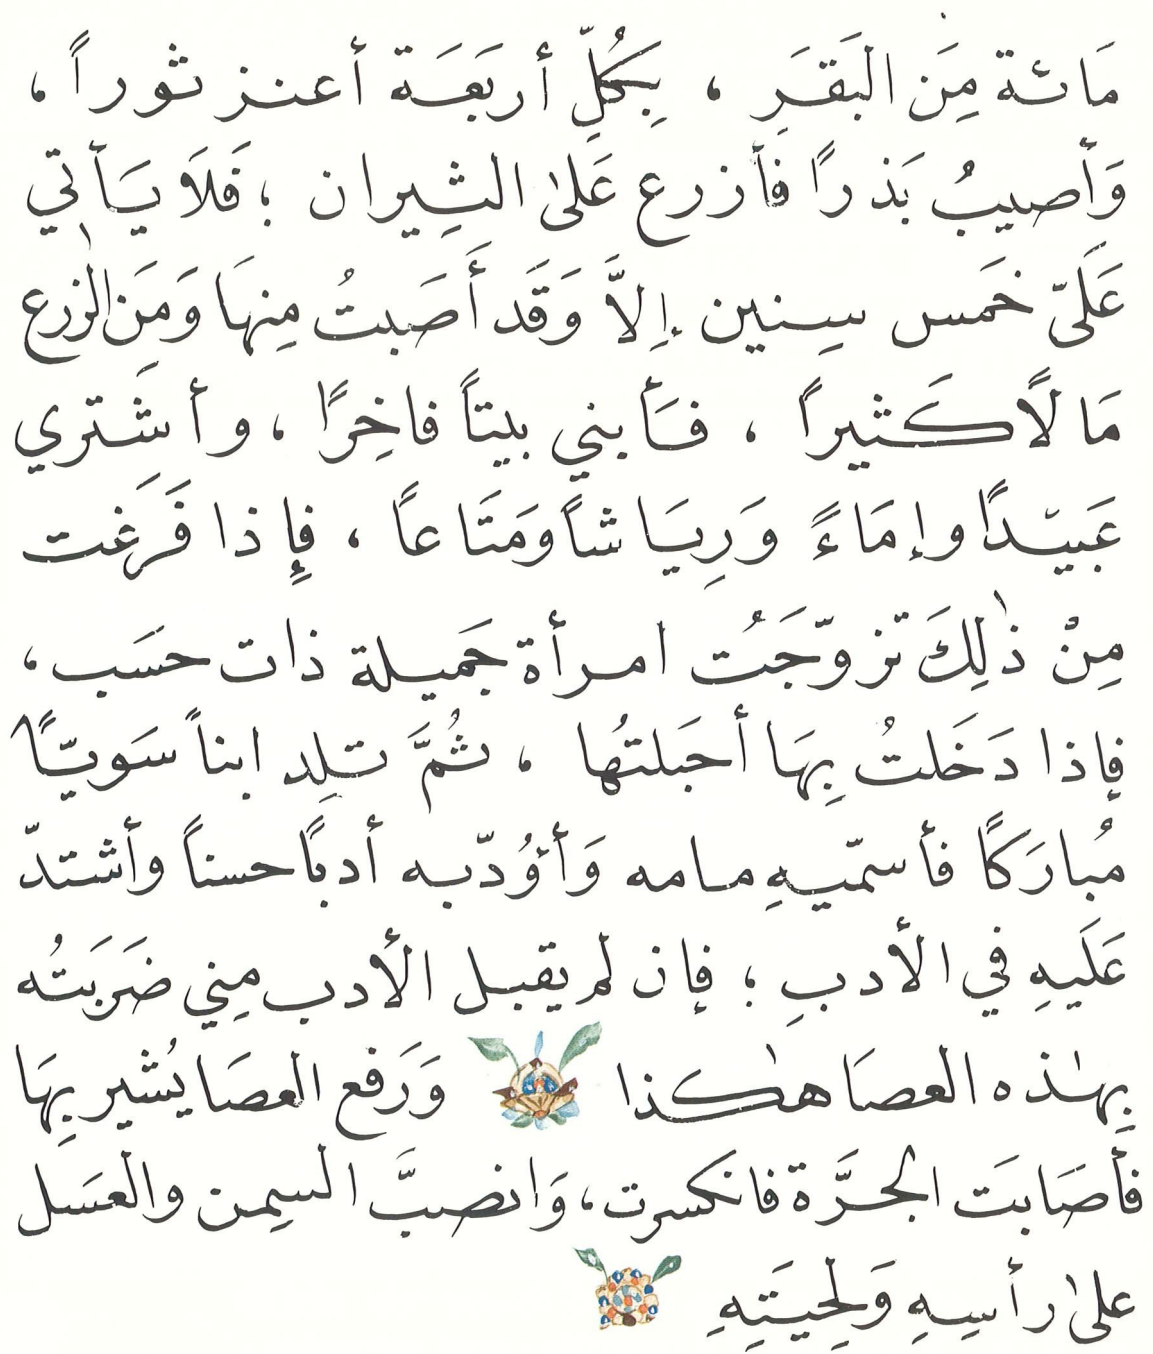 مَائة مِنَ البَقَرِ ، بِكُلِّ أربَعَة أعنز ثوراً ،
وَأصيبُ بَذرًا فأزرع عَلىٰ الثِيران ؛ فَلاَ يَأتي
عَلَيّ خَمس سِنين إلاَّ وَقَد أَصَبتُ مِنهَا وَمَن الزرع
مَالًا كَثيراً ، فَأبني بيتاً فاخِرًا ، وأشتَري
عَبيّدًا وإمَاءً وَرِيَاشاً وَمَتَاعاً ، فإِذا فَرَغت
مِنْ ذٰلِكَ تزوّجَتُ امرأة جَميلة ذات حسَب ،
فإذا دَخَلتُ بِهَا أحبَلتُها ، ثُمَّ تلِد ابناً سَويّاً
مُبارَكًا فأسمّيهِ مامه وَأؤُدّبه أدبًا حسناً وأشتدّ
عَلَيهِ في الأدبِ ؛ فإن لم يقبل الأدب مِني ضَرَبتُه
بِهٰذه العصَا هٰكذا وَرَفع العصَا يُشير بِهَا
فأصَابَت الجرَّة فانكسرت ، وَانصبَّ السمِن والعسَل
علىٰ رأسِهِ وَلِحيَتِهِ